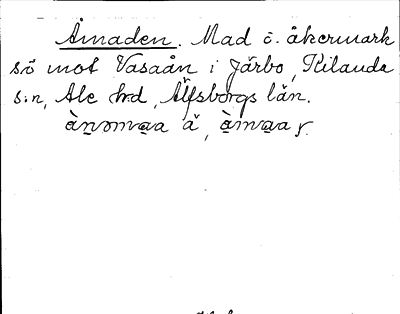 Åmaden. Mad o. åkermark
sö mot Vasaån i Jårbo, Kilanda
s:n, Ale hrd, Älfsborgs län.